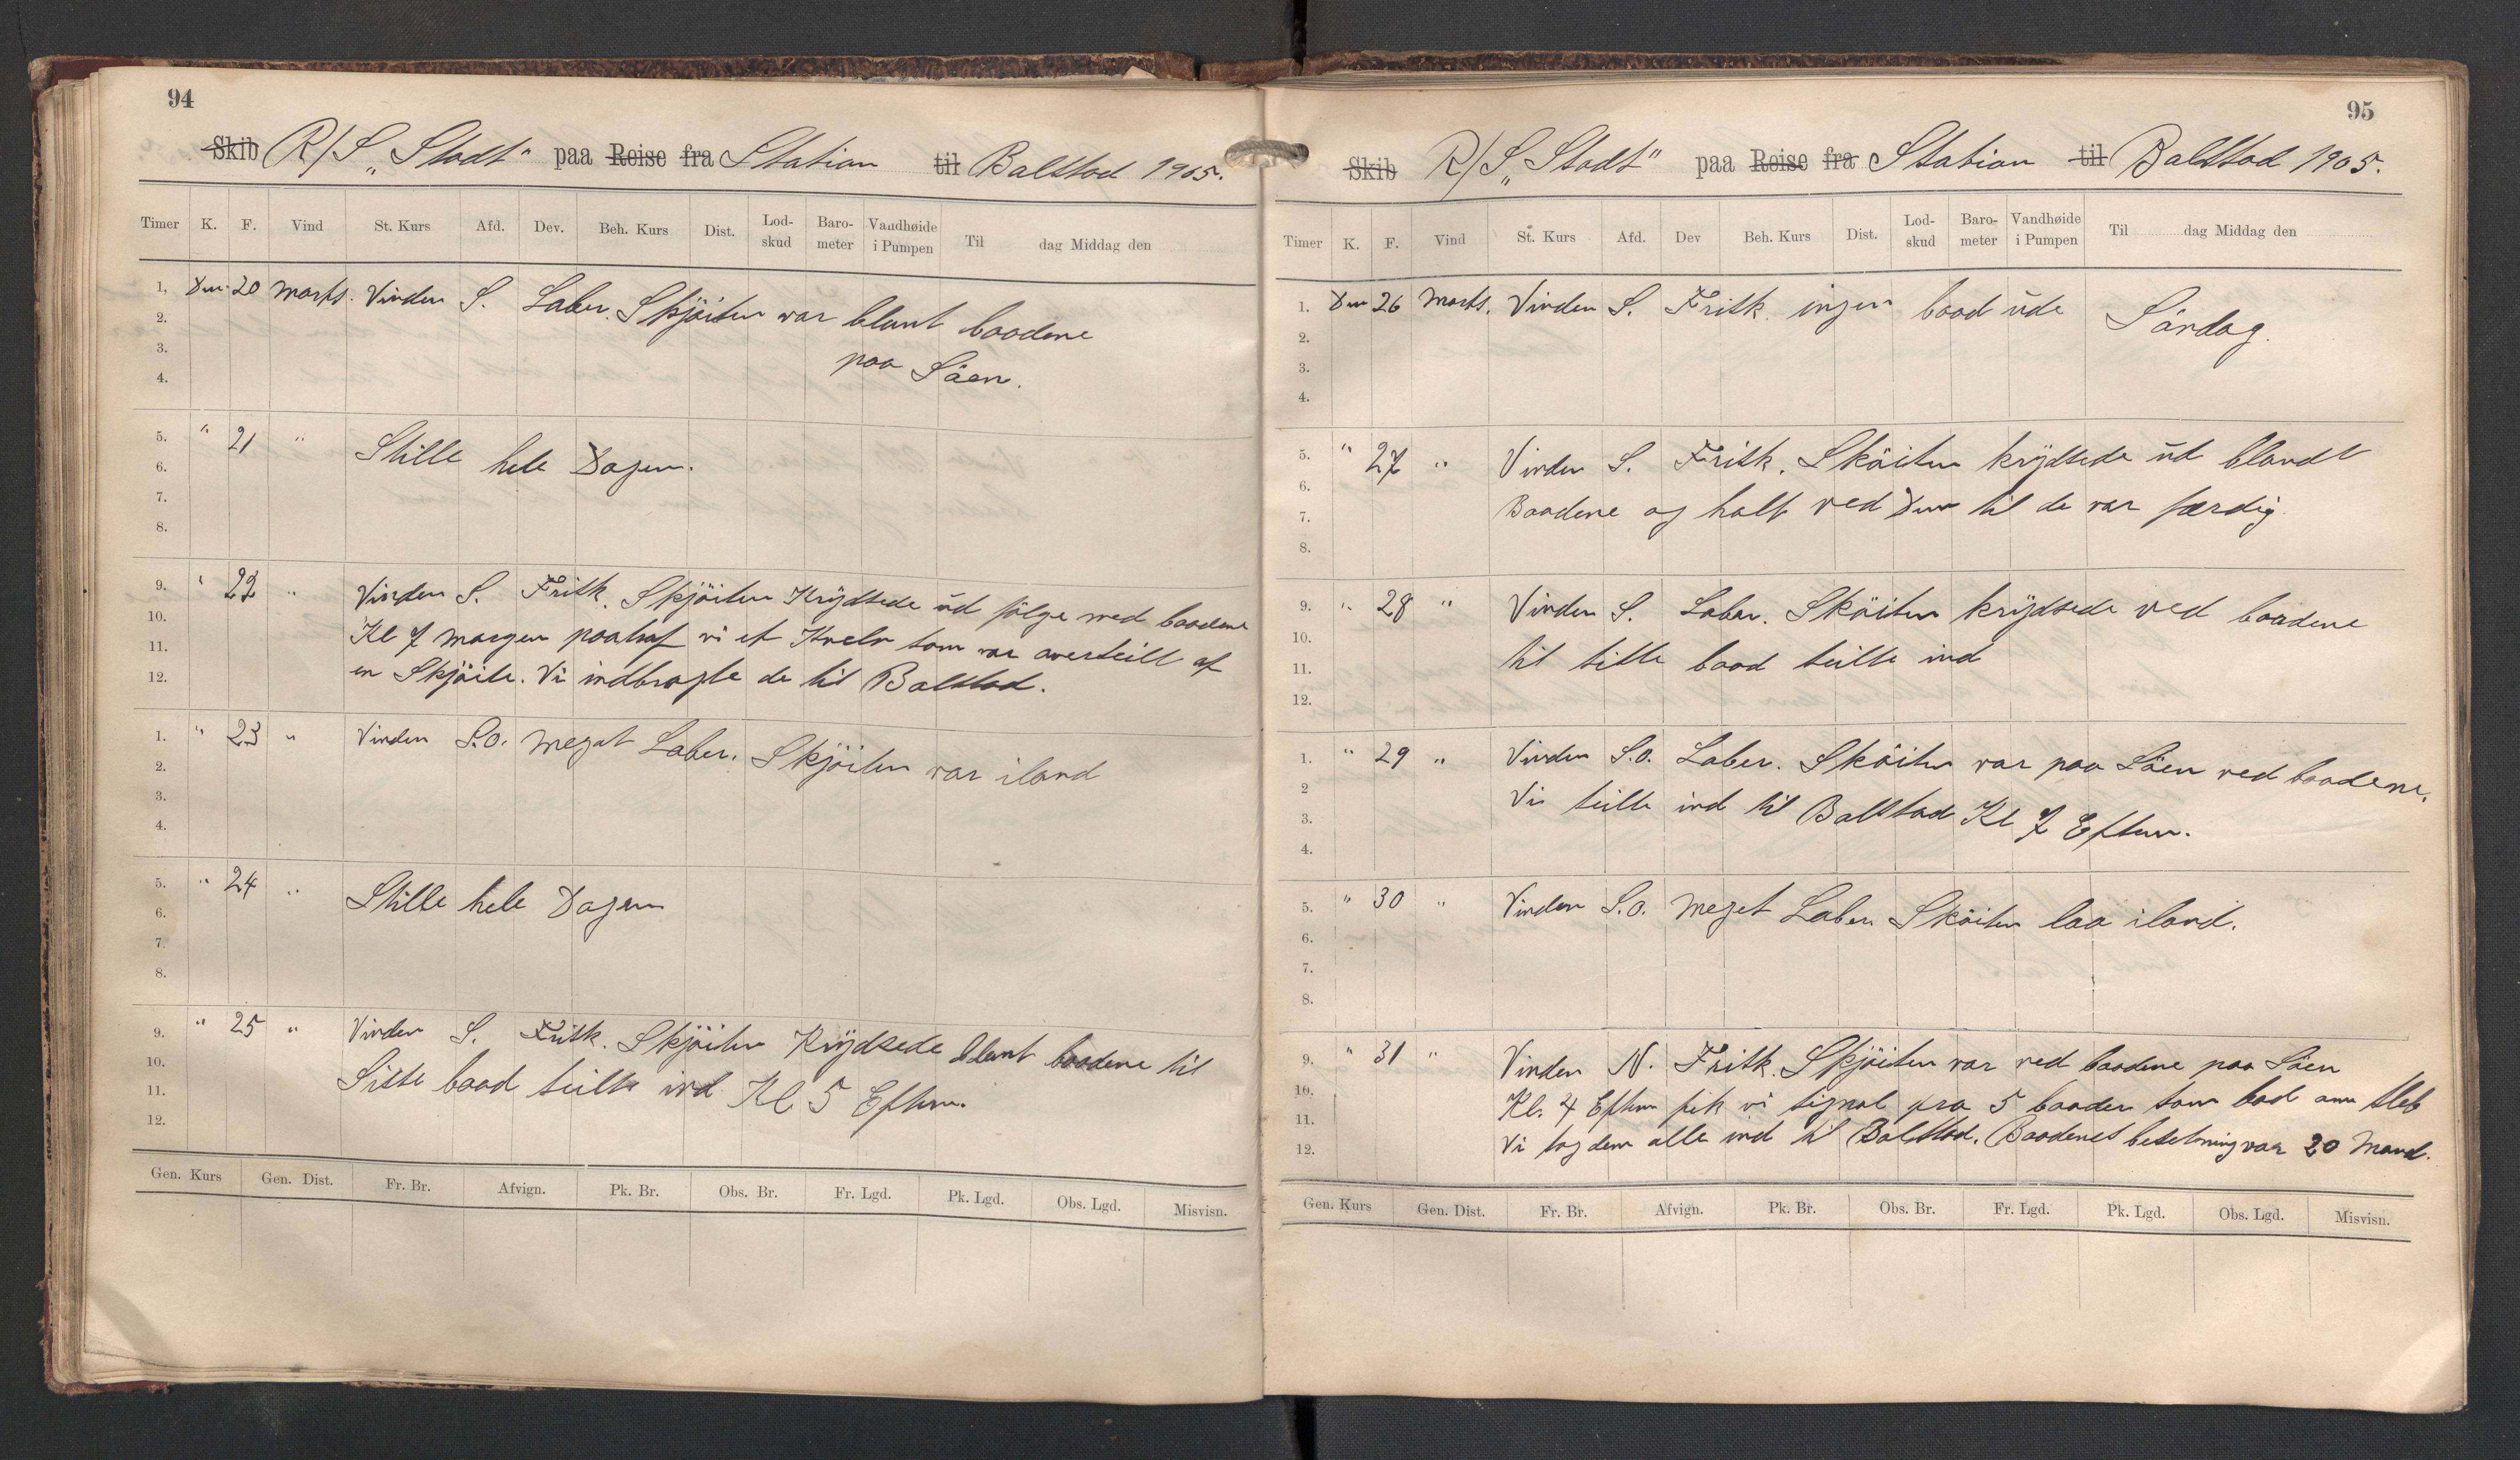 94
Skib R/S „Stadt" paa Reise fra Station til Balstad 1905.
Timer K. F. Vind St. Kurs Afd. Dev. Beh. Kurs Dist. Lod-skud Baro-meter Vandhøide i Pumpen Til dag Middag den
1. Den 20 Marts. Vinden S. Laber. Skjöiten var blant baadene
2.
3. paa Söen.
4.
5. " 21 " Stille hele Dagen.
6.
7.
8.
9. " 22 " Vinden S. Frisk. Skjöiten Krÿdsede ud fölge med baadene
10. Kl 7 morgen paatraf vi et Kvelv som var overseilt af
11. en Skjöite. Vi indbragte de til Balstad.
12.
1. " 23 " Vinden S.O. meget Laber. Skjöiten var iland
2.
3.
4.
5. " 24 " Stille hele Dagen
6.
7.
8.
9. " 25 " Vinden S. Frisk. Skjöiten Krÿdsede blant baadene til
10. Siste baad seilte ind Kl 5 Efterm.
11.
12.
Gen. Kurs Gen. Dist. Fr. Br. Afvign. Pk. Br. Obs. Br. Fr. Lgd. Pk. Lgd. Obs. Lgd. Misvisn.
95
Skib R/S „Stadt" paa Reise fra Station til Balstad 1905.
Timer K. F. Vind St. Kurs Afd. Dev Beh. Kurs Dist. Lod-skud Baro-meter Vandhøide i Pumpen Til dag Middag den
1. Den 26 Marts. Vinden S. Frisk. ingen baad ude Söndag.
2.
3.
4.
5. " 27 " Vinden S. Frisk. Sköiten krÿdsede ud blandt
6. Baadene og holt ved Dem til de var færdig.
7.
8.
9. " 28 " Vinden S. Laber. Sköiten krÿdsede ved baadene
10. til siste baad seilte ind
11.
12.
1. " 29 " Vinden S.O. Laber. Sköiten var paa Söen ved baadene.
2 Vi seilte ind til Balstad Kl 7 Efterm.
3.
4.
5. " 30 " Vinden S.O. meget Laber Sköiten laa iland.
6.
7.
8.
9. " 31 " Vinden N. Frisk. Skjöiten var ved baadene paa Söen
10. Kl. 4 Efterm fik vi signal fra 5 baader som bad om Sleb
11. Vi tog dem alle ind til Balstad. Baadenes besetning var 20 Mand.
12.
Gen. Kurs Gen. Dist. Fr. Br. Afvign. Pk. Br. Obs. Br. Fr. Lgd. Pk. Lgd. Obs. Lgd. Misvisn.